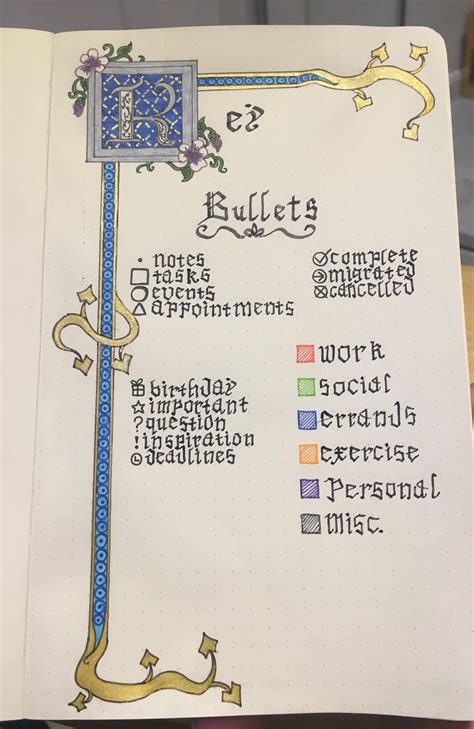 Key
Bullets
· notes
□ tasks
○ events
△ appointments
complete
migrated
cancelled
birthday
☆ important
? question
! inspiration
deadlines
work
social
errands
exercise
Personal
Misc.